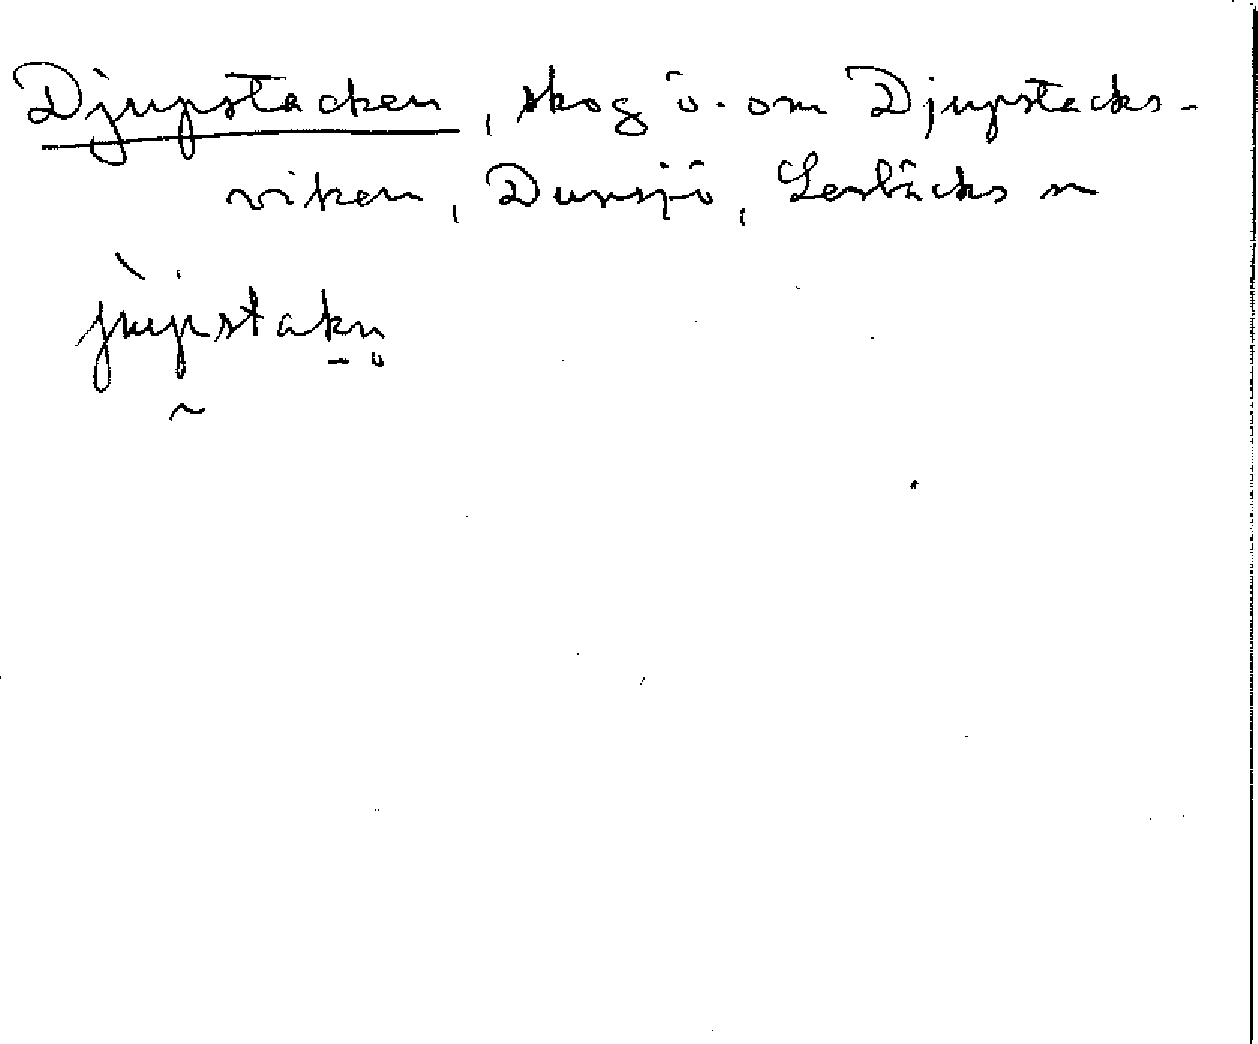 Djupstacken, skog ö. om Djupstacks-
viken, Dunsjö, Lerbäcks sn
jùpstakn